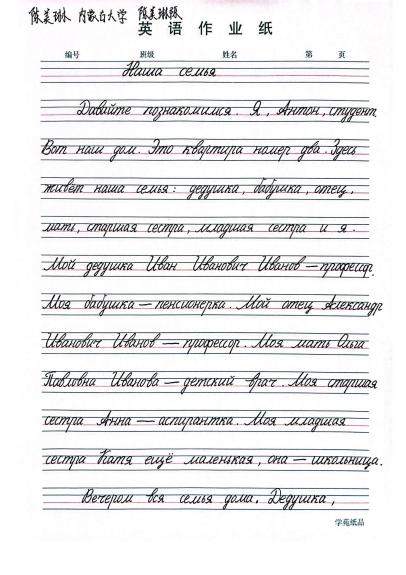 陈美琳 内蒙古大学 陈美琳
英语作业纸
编号 班级 姓名 第 页
Наша семья
Давайте познакомимся. Я, Антон, студент.
Вот наш дом. Это квартира номер два. Здесь
живёт наша семья: дедушка, бабушка, отец,
мать, старшая сестра, младшая сестра и я.
Мой дедушка Иван Иванович Иванов — профессор.
Моя бабушка — пенсионерка. Мой отец Александр
Иванович Иванов — профессор. Моя мать Ольга
Павловна Иванова — детский врач. Моя старшая
сестра Анна — аспирантка. Моя младшая
сестра Катя ещё маленькая, она — школьница.
Вечером вся семья дома. Дедушка,
学苑纸品